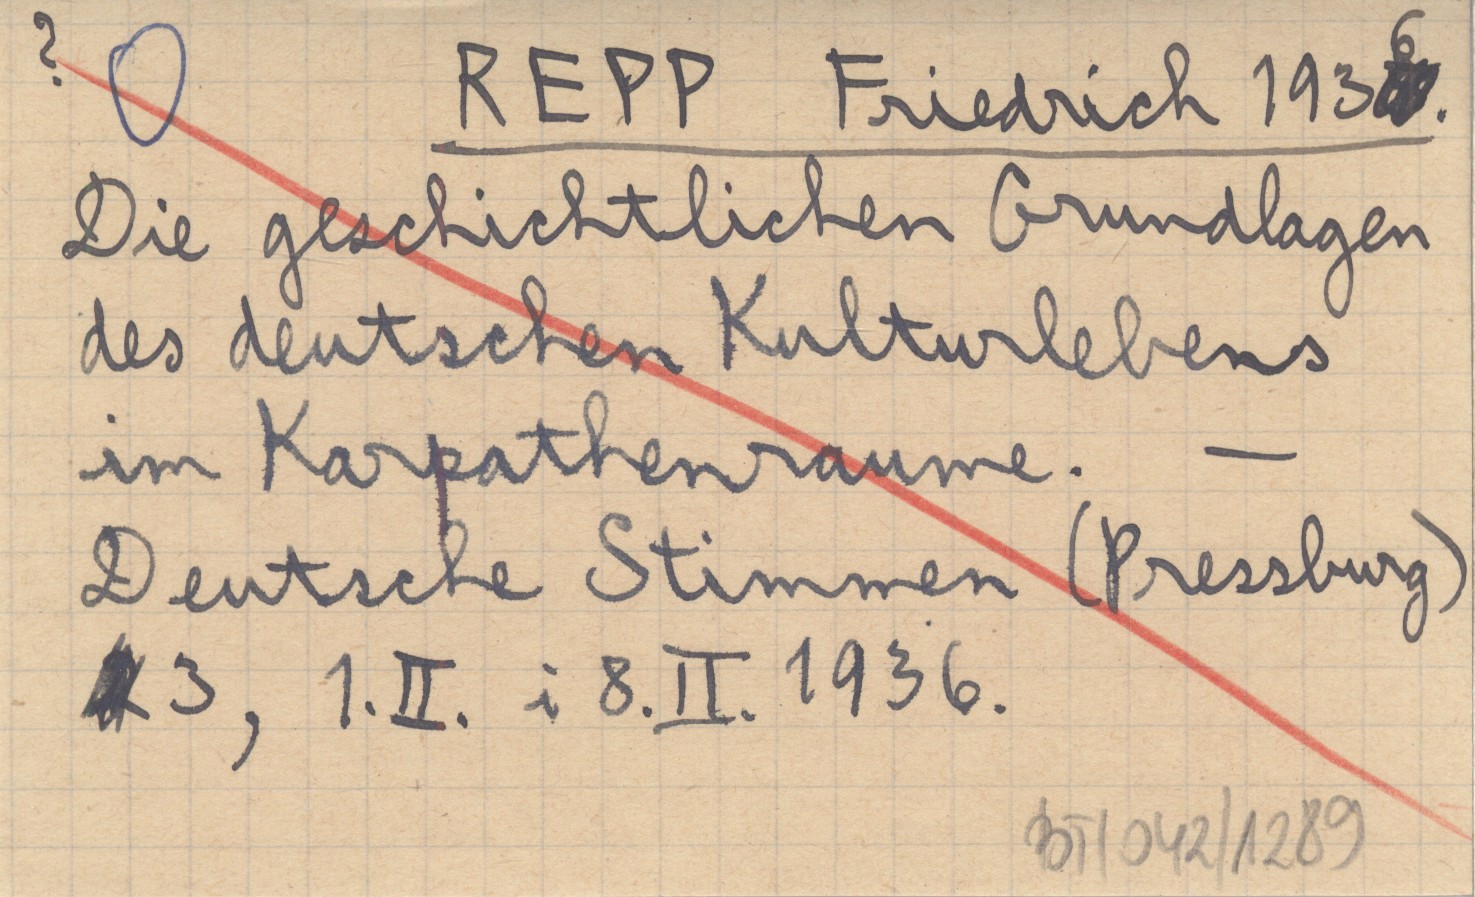 ?
REPP Friedrich 1936.
Die geschichtlichen Grundlagen
des deutschen Kulturlebens
im Karpathenraume. —
Deutsche Stimmen (Pressburg)
3, 1.II. i 8.II. 1936.
BT/042/1289